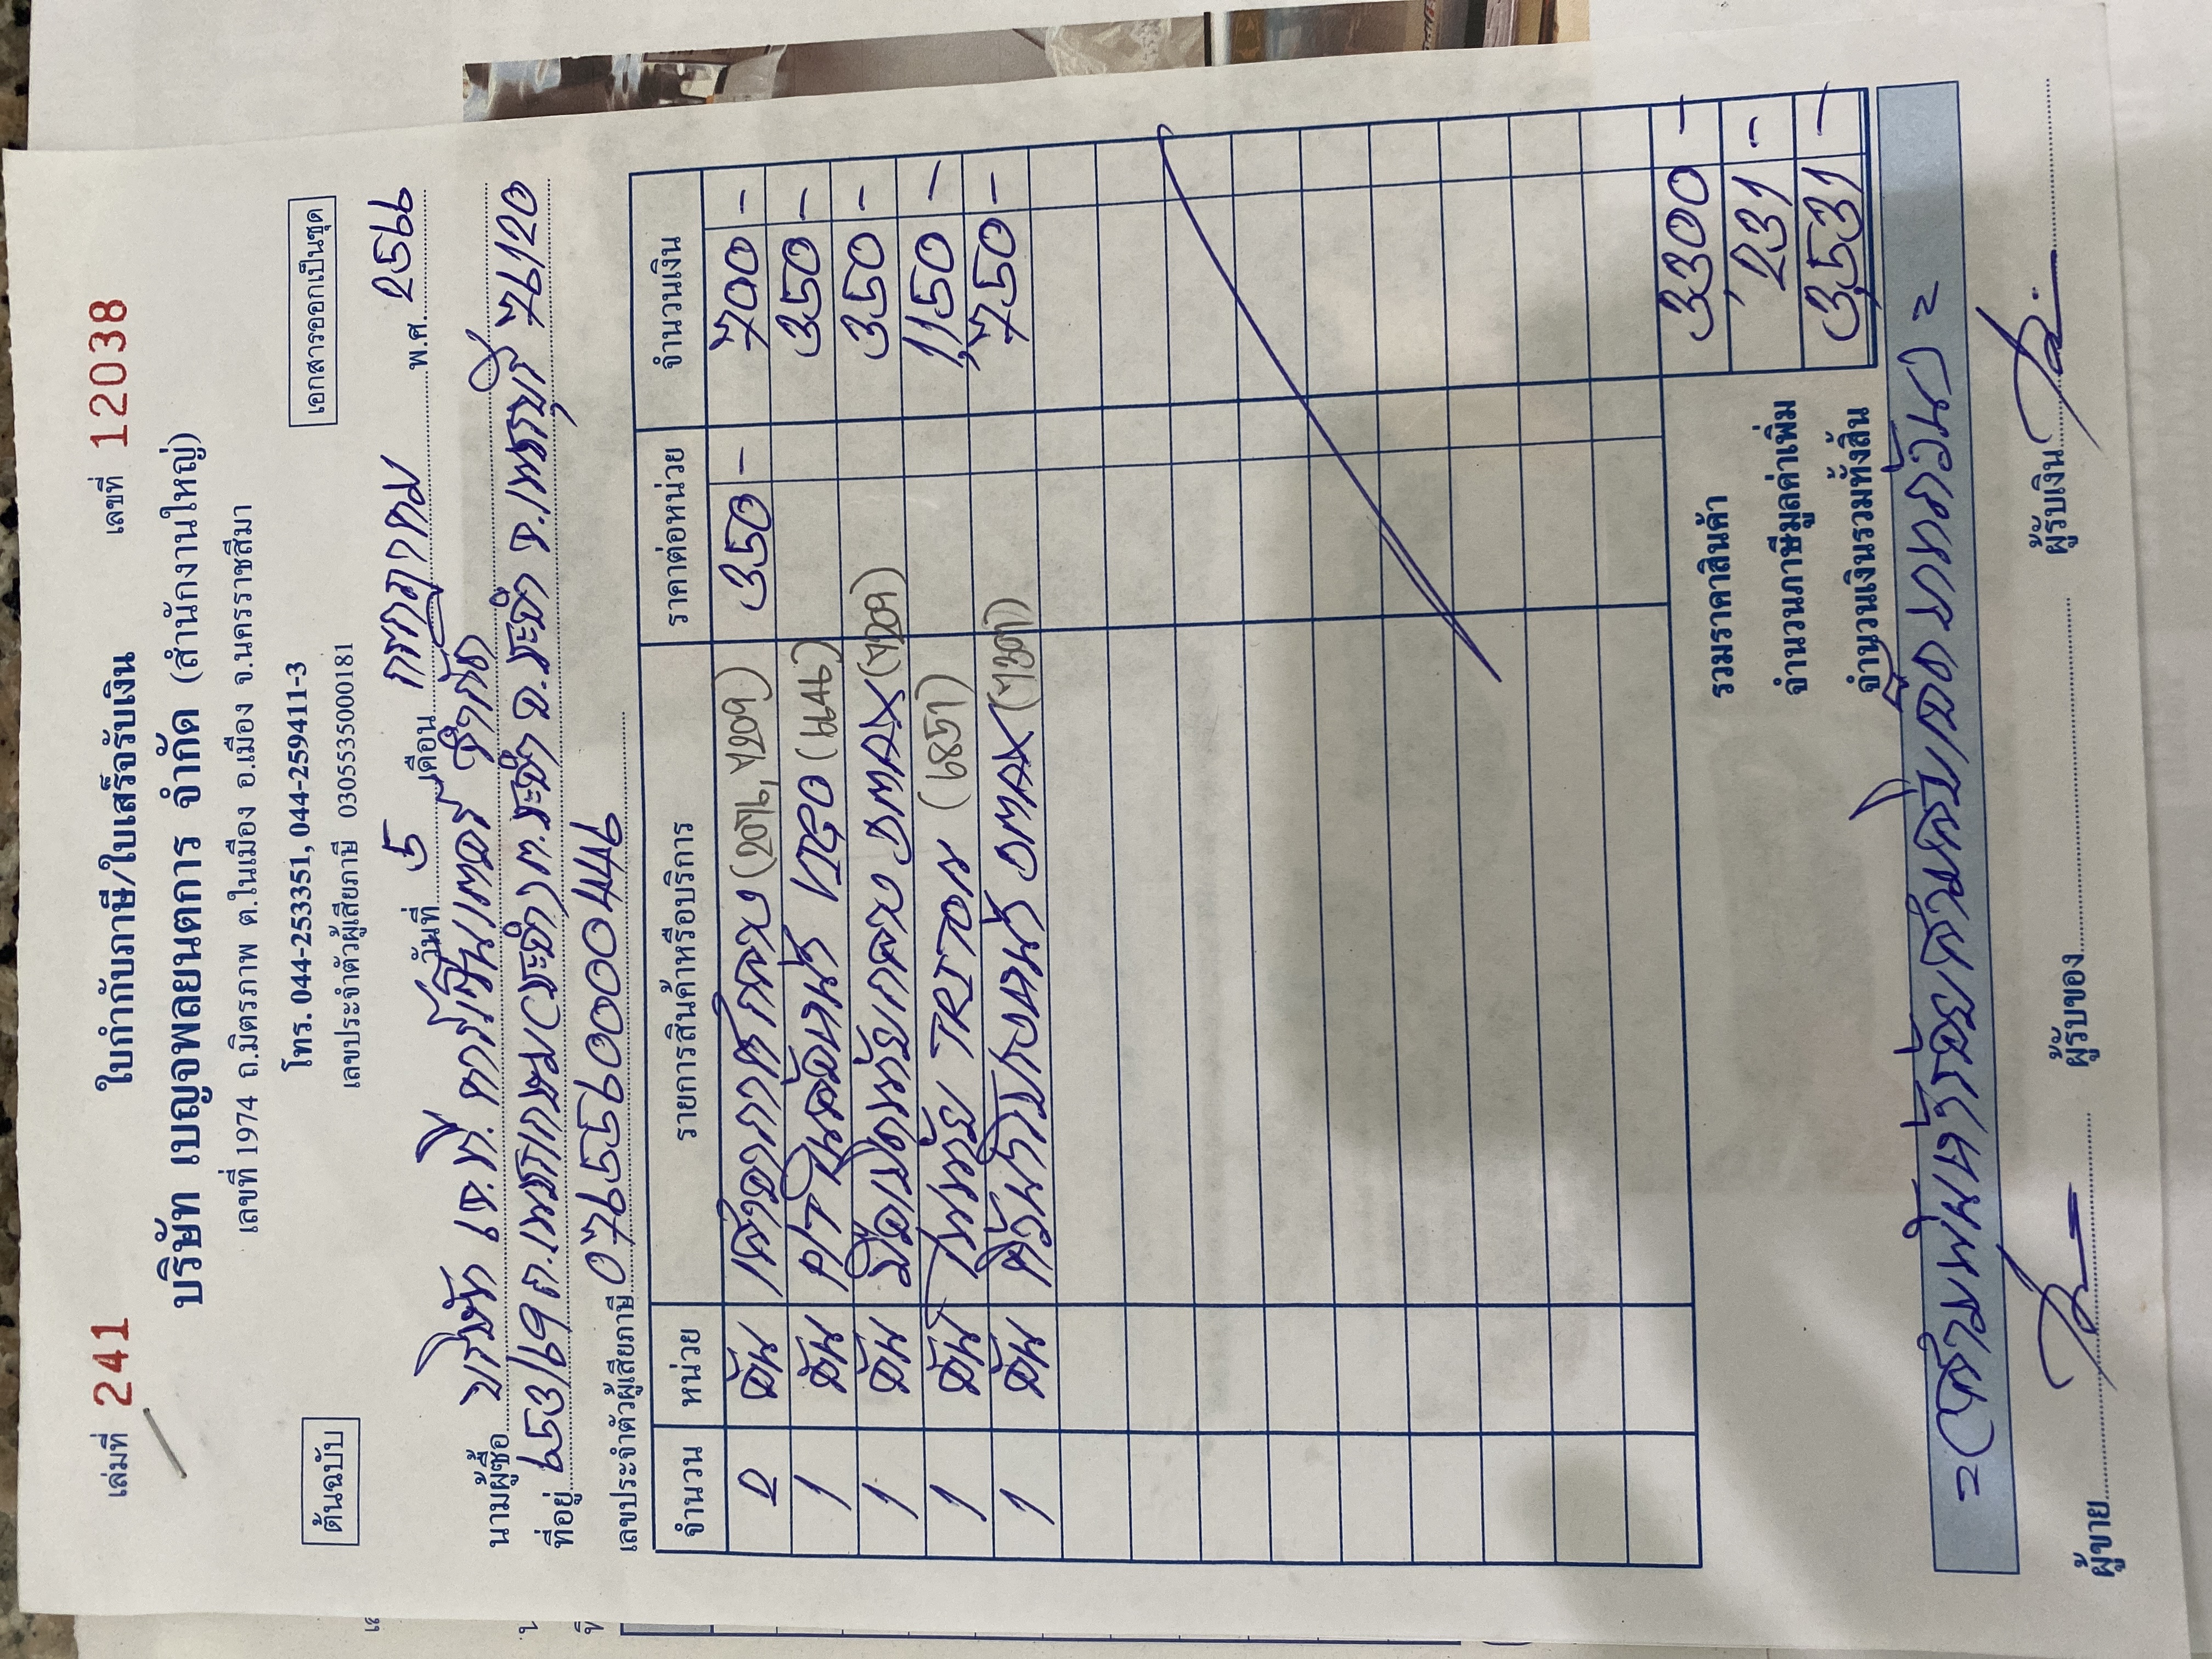 เล่มที่ 241 ใบกำกับภาษี/ใบเสร็จรับเงิน เลขที่ 12038
บริษัท เบญจพลยนตการ จำกัด (สำนักงานใหญ่)
เลขที่ 1974 ถ.มิตรภาพ ต.ในเมือง อ.เมือง จ.นครราชสีมา
ต้นฉบับ โทร. 044-253351, 044-259411-3 เอกสารออกเป็นชุด
เลขประจำตัวผู้เสียภาษี 0305535000181
วันที่ 5 เดือน กรกฎาคม พ.ศ. 2566
นามผู้ซื้อ บริษัท เจ.ที. คาร์เซ็นเตอร์ จำกัด
ที่อยู่ 953/69 ถ.เพชรเกษม(ชะอำ) ต.ชะอำ อ.ชะอำ จ.เพชรบุรี 76120
เลขประจำตัวผู้เสียภาษี 0765559000449
จำนวน หน่วย รายการสินค้าหรือบริการ ราคาต่อหน่วย จำนวนเงิน
2 อัน (2076, 4209) 350 - 700 -
1 อัน V20 350 -
1 อัน DMAX (4209) 350 -
1 อัน TRITON (6851) 1,150 -
1 อัน DMAX 750 -
รวมราคาสินค้า 3300 -
จำนวนภาษีมูลค่าเพิ่ม 231 -
จำนวนเงินรวมทั้งสิ้น 3,531 -
=(สามพันห้าร้อยสามสิบเอ็ดบาทถ้วน)=
ผู้ขาย ผู้รับของ ผู้รับเงิน